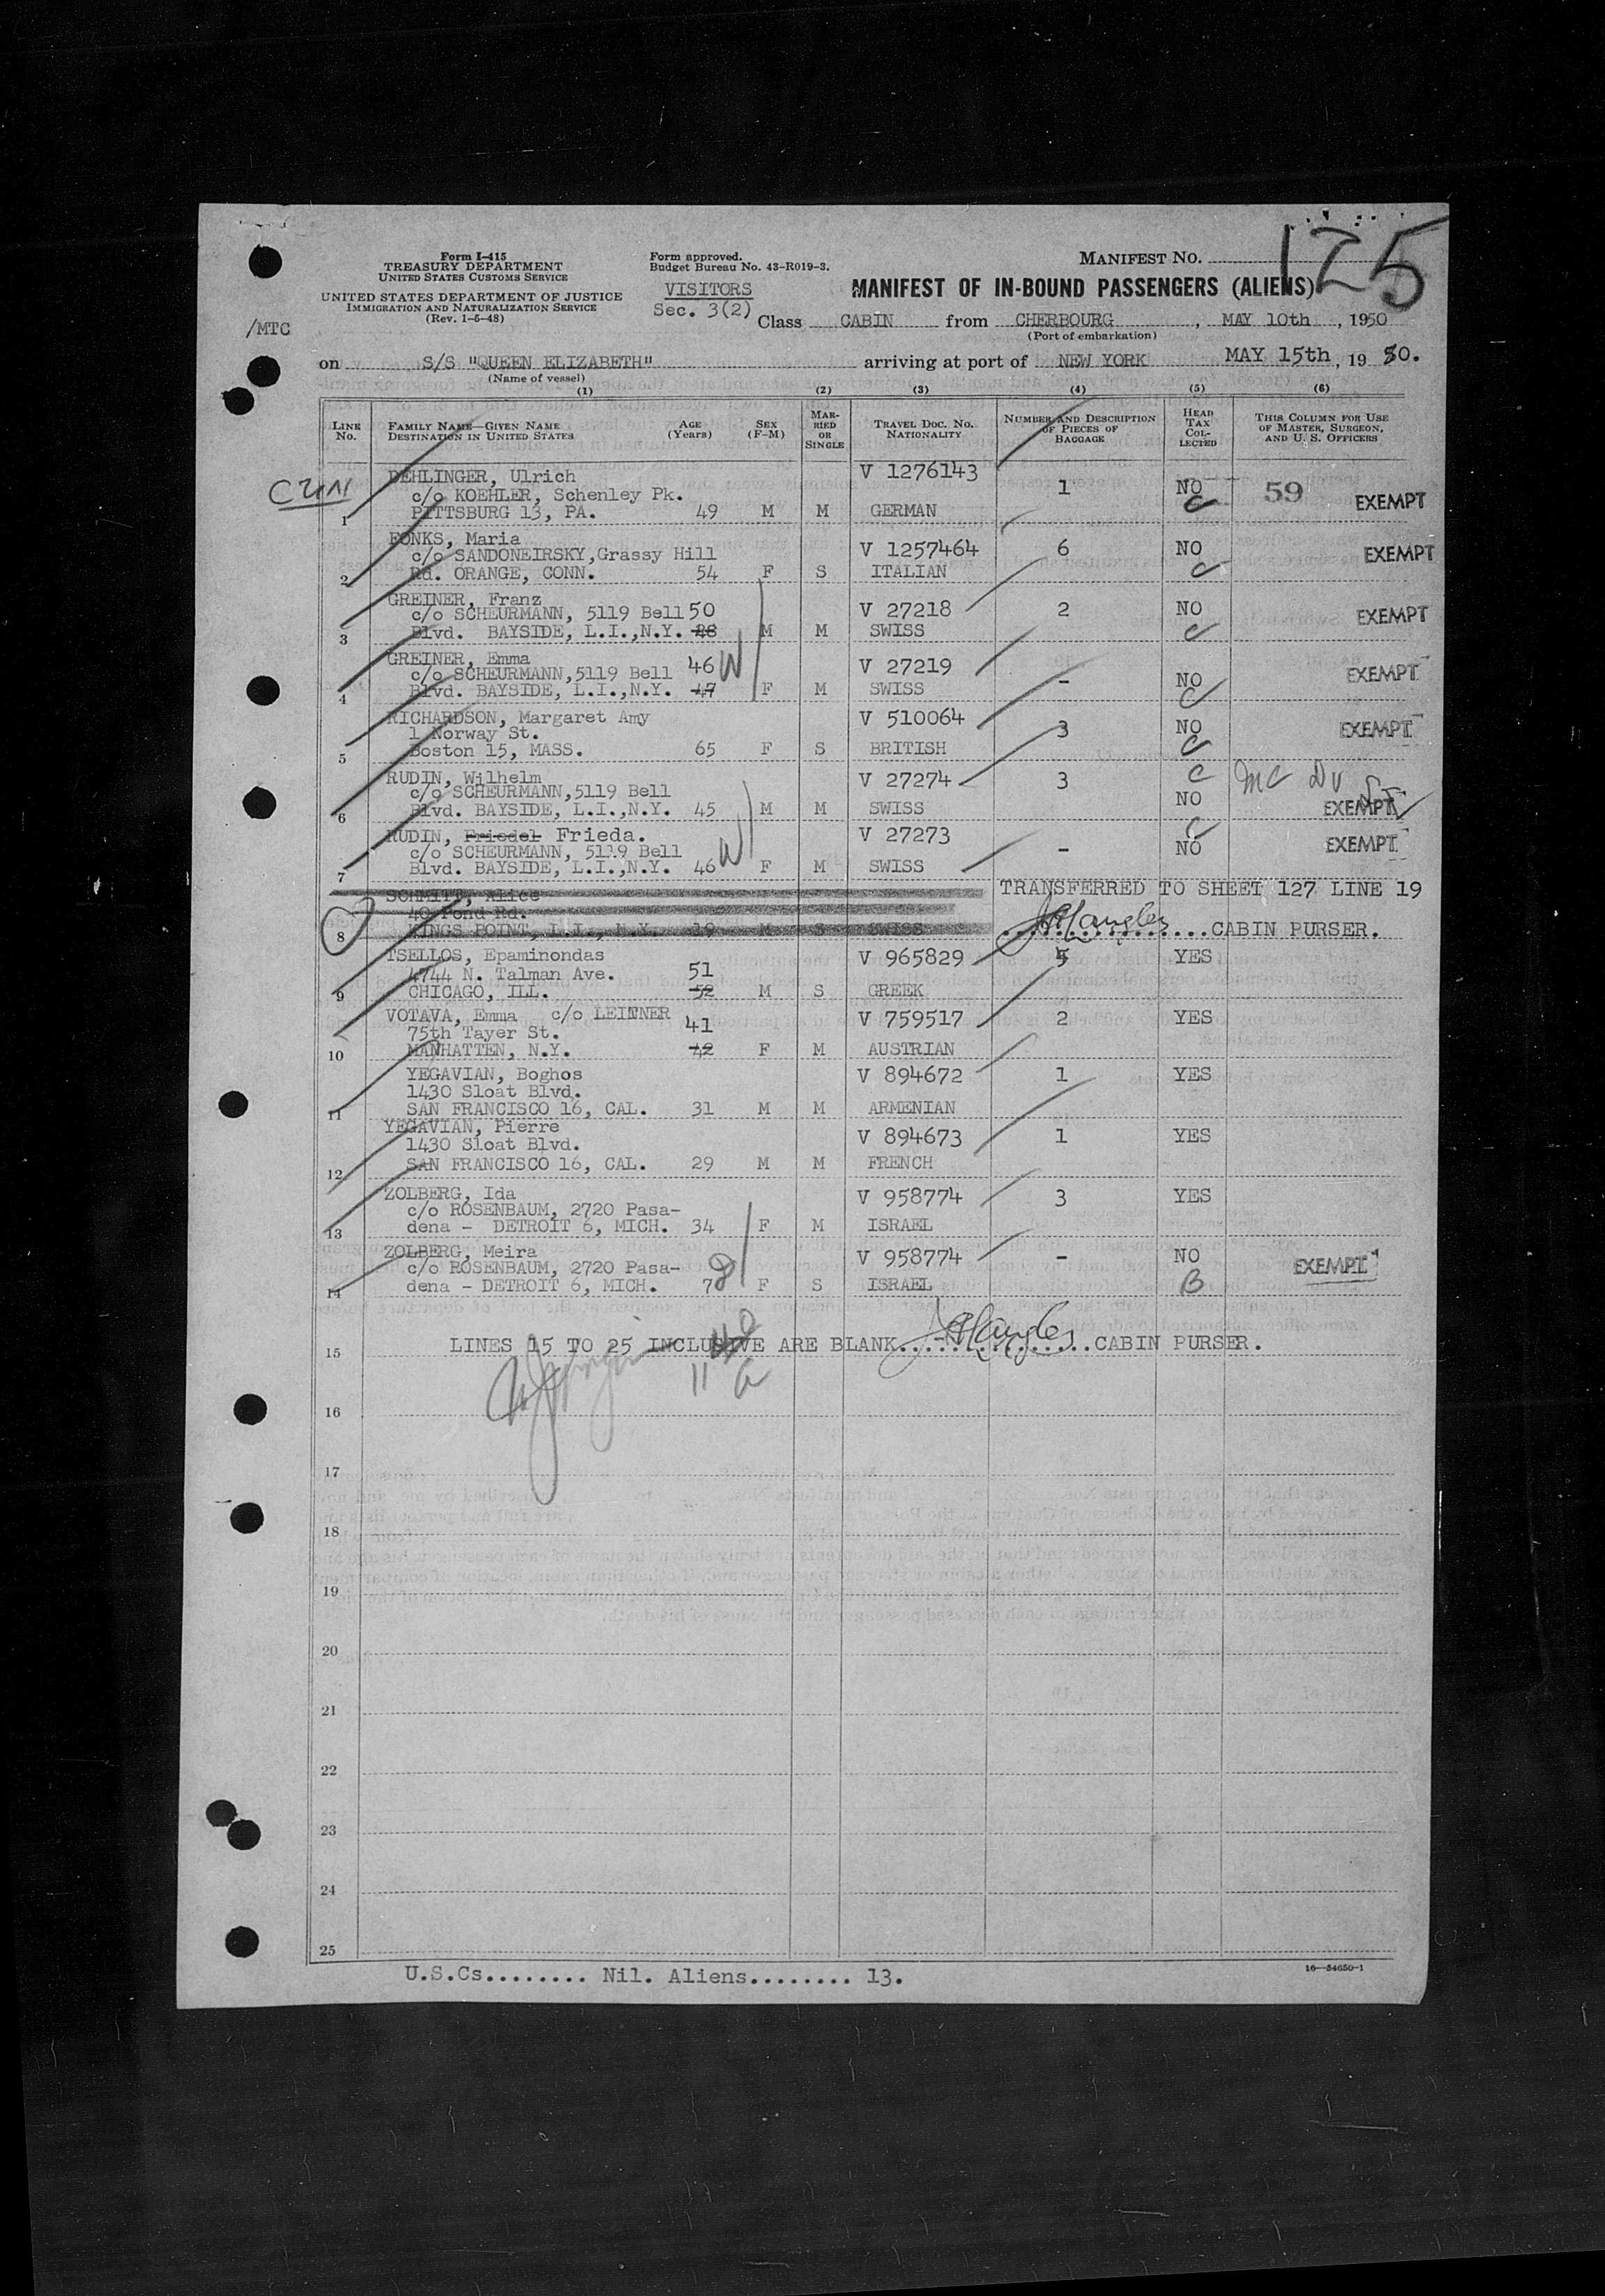 Form I-415
TREASURY DEPARTMENT
UNITED STATES CUSTOMS SERVICE
UNITED STATES DEPARTMENT OF JUSTICE
IMMIGRATION AND NATURALIZATION SERVICE
(Rev. 1-5-48)
/MTC
Form approved.
Budget Bureau No. 43-R019-3.
VISITORS
Sec. 3(2)
MANIFEST No. 125
MANIFEST OF IN-BOUND PASSENGERS (ALIENS)
Class CABIN from CHERBOURG, MAY 10th, 1950
(Port of embarkation)
on S/S "QUEEN ELIZABETH" arriving at port of NEW YORK MAY 15th, 1950.
(Name of vessel)
(1) (2) (3) (4) (5) (6)
LINE No.
FAMILY NAME—GIVEN NAME
DESTINATION IN UNITED STATES
AGE (Years)
SEX (F-M)
MARRIED OR SINGLE
TRAVEL DOC. No.
NATIONALITY
NUMBER AND DESCRIPTION OF PIECES OF BAGGAGE
HEAD TAX COLLECTED
THIS COLUMN FOR USE OF MASTER, SURGEON, AND U. S. OFFICERS
DEHLINGER, Ulrich V 1276143
c/o KOEHLER, Schenley Pk. 1 NO 59 EXEMPT
1 PITTSBURG 13, PA. 49 M M GERMAN C
FONKS, Maria
c/o SANDONEIRSKY, Grassy Hill V 1257464 6 NO EXEMPT
2 Rd. ORANGE, CONN. 54 F S ITALIAN C
GREINER, Franz
c/o SCHEURMANN, 5119 Bell 50 V 27218 2 NO EXEMPT
3 Blvd. BAYSIDE, L.I.,N.Y. 48 M M SWISS C
GREINER, Emma
c/o SCHEURMANN,5119 Bell 46 W V 27219 - NO EXEMPT
4 Blvd. BAYSIDE, L.I.,N.Y. 47 F M SWISS C
RICHARDSON, Margaret Amy V 510064
1 Norway St. 3 NO EXEMPT
5 Boston 15, MASS. 65 F S BRITISH C
RUDIN, Wilhelm V 27274 3 C
c/o SCHEURMANN,5119 Bell NO
6 Blvd. BAYSIDE, L.I.,N.Y. 45 M M SWISS EXEMPT
RUDIN, Friedel Frieda. V 27273 C
c/o SCHEURMANN, 5119 Bell W - NO EXEMPT
7 Blvd. BAYSIDE, L.I.,N.Y. 46 F M SWISS
SCHMITT, Alice TRANSFERRED TO SHEET 127 LINE 19
40 Pond Rd.
8 KINGS POINT, L.I., N.Y. 19 M S SWISS CABIN PURSER.
TSELLOS, Epaminondas V 965829 5 YES
4744 N. Talman Ave. 51
9 CHICAGO, ILL. 52 M S GREEK
VOTAVA, Emma c/o LEITNER V 759517 2 YES
75th Tayer St. 41
10 MANHATTEN, N.Y. 42 F M AUSTRIAN
YEGAVIAN, Boghos V 894672 1 YES
1430 Sloat Blvd.
11 SAN FRANCISCO 16, CAL. 31 M M ARMENIAN
YEGAVIAN, Pierre V 894673 1 YES
1430 Sloat Blvd.
12 SAN FRANCISCO 16, CAL. 29 M M FRENCH
ZOLBERG, Ida V 958774 3 YES
c/o ROSENBAUM, 2720 Pasa-
13 dena - DETROIT 6, MICH. 34 F M ISRAEL
ZOLBERG, Meira V 958774 - NO EXEMPT
c/o ROSENBAUM, 2720 Pasa-
14 dena - DETROIT 6, MICH. 7 F S ISRAEL B
15 LINES 15 TO 25 INCLUSIVE ARE BLANK CABIN PURSER.
16
17
18
19
20
21
22
23
24
25
U.S.Cs........ Nil. Aliens........ 13.
16-54650-1